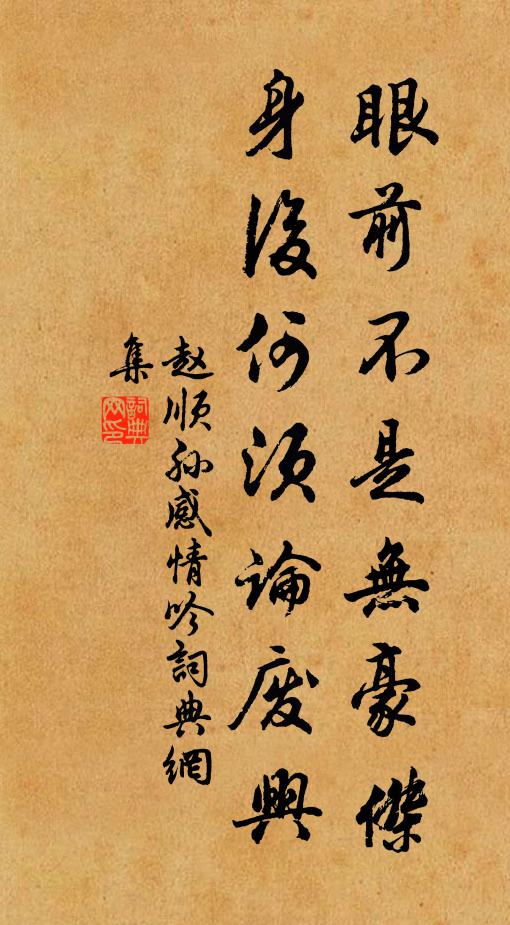 眼前不是無豪傑
身後何須論廢興
赵順孙感情吟詞典網
集
詞典网印